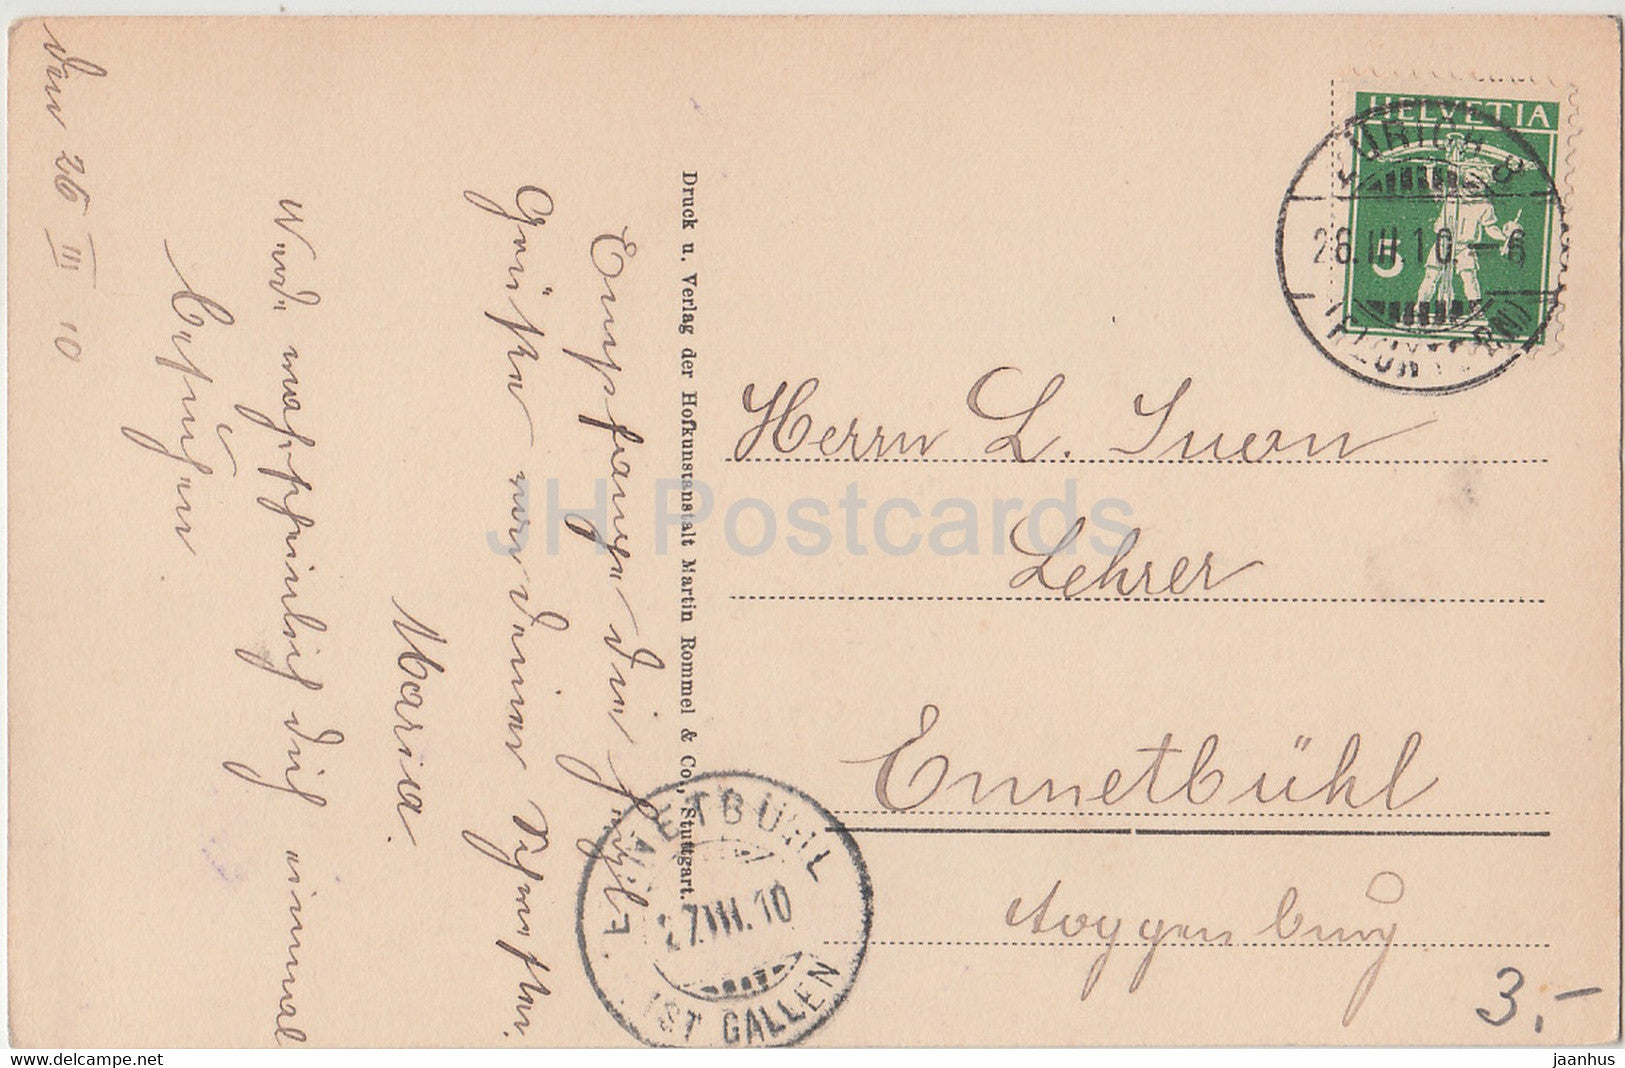 HELVETIA
5
ZÜRICH 8
26.III.10.–6
Herrn L. Inern
Lehrer
Ennetbühl
Toggenburg
3.-
Druck u. Verlag der Hofkunstanstalt Martin Rommel & Co., Stuttgart.
Empfange die herzl.
Grüße von deiner Schwester
Maria.
Werde wahrscheinlich dich einmal
besuchen
den 26 III 10
ENNETBÜHL
27.III.10
(ST GALLEN)
JH Postcards
www.delcampe.net
jaanhus